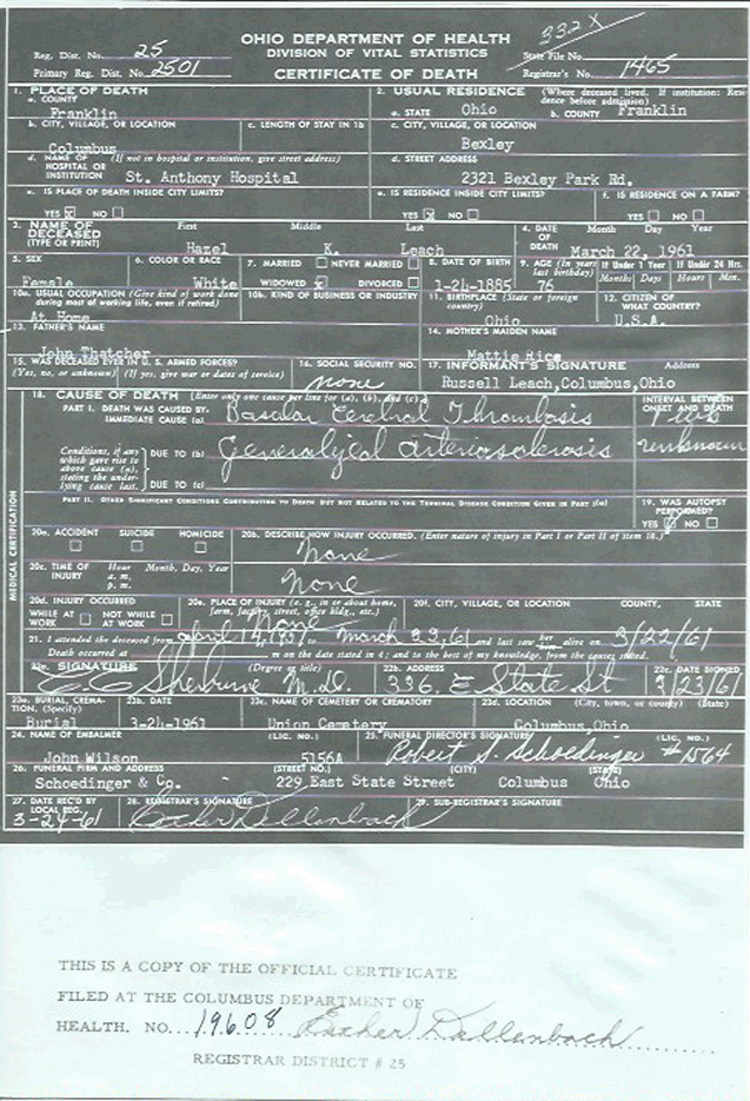 332 X
OHIO DEPARTMENT OF HEALTH
DIVISION OF VITAL STATISTICS
CERTIFICATE OF DEATH
Reg. Dist. No. 25
Primary Reg. Dist. No. 2501
State File No.
Registrar's No. 1465
1. PLACE OF DEATH
a. COUNTY
Franklin
b. CITY, VILLAGE, OR LOCATION
Columbus
c. LENGTH OF STAY IN 1b
d. NAME OF HOSPITAL OR INSTITUTION (If not in hospital or institution, give street address)
St. Anthony Hospital
e. IS PLACE OF DEATH INSIDE CITY LIMITS?
YES NO
2. USUAL RESIDENCE (Where deceased lived. If institution: Residence before admission)
a. STATE Ohio
b. COUNTY Franklin
c. CITY, VILLAGE, OR LOCATION
Bexley
d. STREET ADDRESS
2321 Bexley Park Rd.
e. IS RESIDENCE INSIDE CITY LIMITS?
YES NO
f. IS RESIDENCE ON A FARM?
YES NO
3. NAME OF DECEASED (TYPE OR PRINT)
First Middle Last
Hazel K. Leach
4. DATE OF DEATH Month Day Year
March 22, 1961
5. SEX
Female
6. COLOR OR RACE
White
7. MARRIED NEVER MARRIED
WIDOWED DIVORCED
8. DATE OF BIRTH
1-24-1885
9. AGE (In years last birthday)
76
If Under 1 Year If Under 24 Hrs.
Months Days Hours Min.
10a. USUAL OCCUPATION (Give kind of work done during most of working life, even if retired)
At Home
10b. KIND OF BUSINESS OR INDUSTRY
11. BIRTHPLACE (State or foreign country)
Ohio
12. CITIZEN OF WHAT COUNTRY?
U.S.A.
13. FATHER'S NAME
John Thatcher
14. MOTHER'S MAIDEN NAME
Mattie Rice
15. WAS DECEASED EVER IN U. S. ARMED FORCES?
(Yes, no, or unknown) (If yes, give war or dates of service)
16. SOCIAL SECURITY NO.
none
17. INFORMANT'S SIGNATURE Address
Russell Leach, Columbus, Ohio
18. CAUSE OF DEATH (Enter only one cause per line for (a), (b), and (c))
PART I. DEATH WAS CAUSED BY:
IMMEDIATE CAUSE (a) Basular Cerebral Thrombosis
INTERVAL BETWEEN ONSET AND DEATH
Conditions, if any which gave rise to above cause (a), stating the underlying cause last.
DUE TO (b) Generalized arteriosclerosis
unknown
DUE TO (c)
PART II. OTHER SIGNIFICANT CONDITIONS CONTRIBUTING TO DEATH BUT NOT RELATED TO THE TERMINAL DISEASE CONDITION GIVEN IN PART I(a)
19. WAS AUTOPSY PERFORMED?
YES NO
MEDICAL CERTIFICATION
20a. ACCIDENT SUICIDE HOMICIDE
20b. DESCRIBE HOW INJURY OCCURRED. (Enter nature of injury in Part I or Part II of item 18.)
None
20c. TIME OF INJURY Hour Month, Day, Year
a. m.
p. m.
None
20d. INJURY OCCURRED
WHILE AT WORK NOT WHILE AT WORK
20e. PLACE OF INJURY (e. g., in or about home, farm, factory, street, office bldg., etc.)
None
20f. CITY, VILLAGE, OR LOCATION COUNTY, STATE
21. I attended the deceased from April 14, to March 22, 61 and last saw her alive on 3/22/61
Death occurred at m on the date stated in 4; and to the best of my knowledge, from the causes stated.
22a. SIGNATURE (Degree or title)
M.D.
22b. ADDRESS
336 E State St
22c. DATE SIGNED
3/23/61
23a. BURIAL, CREMATION, (Specify)
Burial
23b. DATE
3-24-1961
23c. NAME OF CEMETERY OR CREMATORY
Union Cemetery
23d. LOCATION (City, town, or county) (State)
Columbus, Ohio
24. NAME OF EMBALMER (LIC. NO.)
John Wilson 5156A
25. FUNERAL DIRECTOR'S SIGNATURE (LIC. NO.)
Robert S. Schoedinger #1564
26. FUNERAL FIRM AND ADDRESS (STREET NO.) (CITY) (STATE)
Schoedinger & Co. 229 East State Street Columbus Ohio
27. DATE REC'D BY LOCAL REG.
3-24-61
28. REGISTRAR'S SIGNATURE
Esther Dallenbach
29. SUB-REGISTRAR'S SIGNATURE
THIS IS A COPY OF THE OFFICIAL CERTIFICATE
FILED AT THE COLUMBUS DEPARTMENT OF
HEALTH. NO. 19608 Esther Dallenbach
REGISTRAR DISTRICT # 25